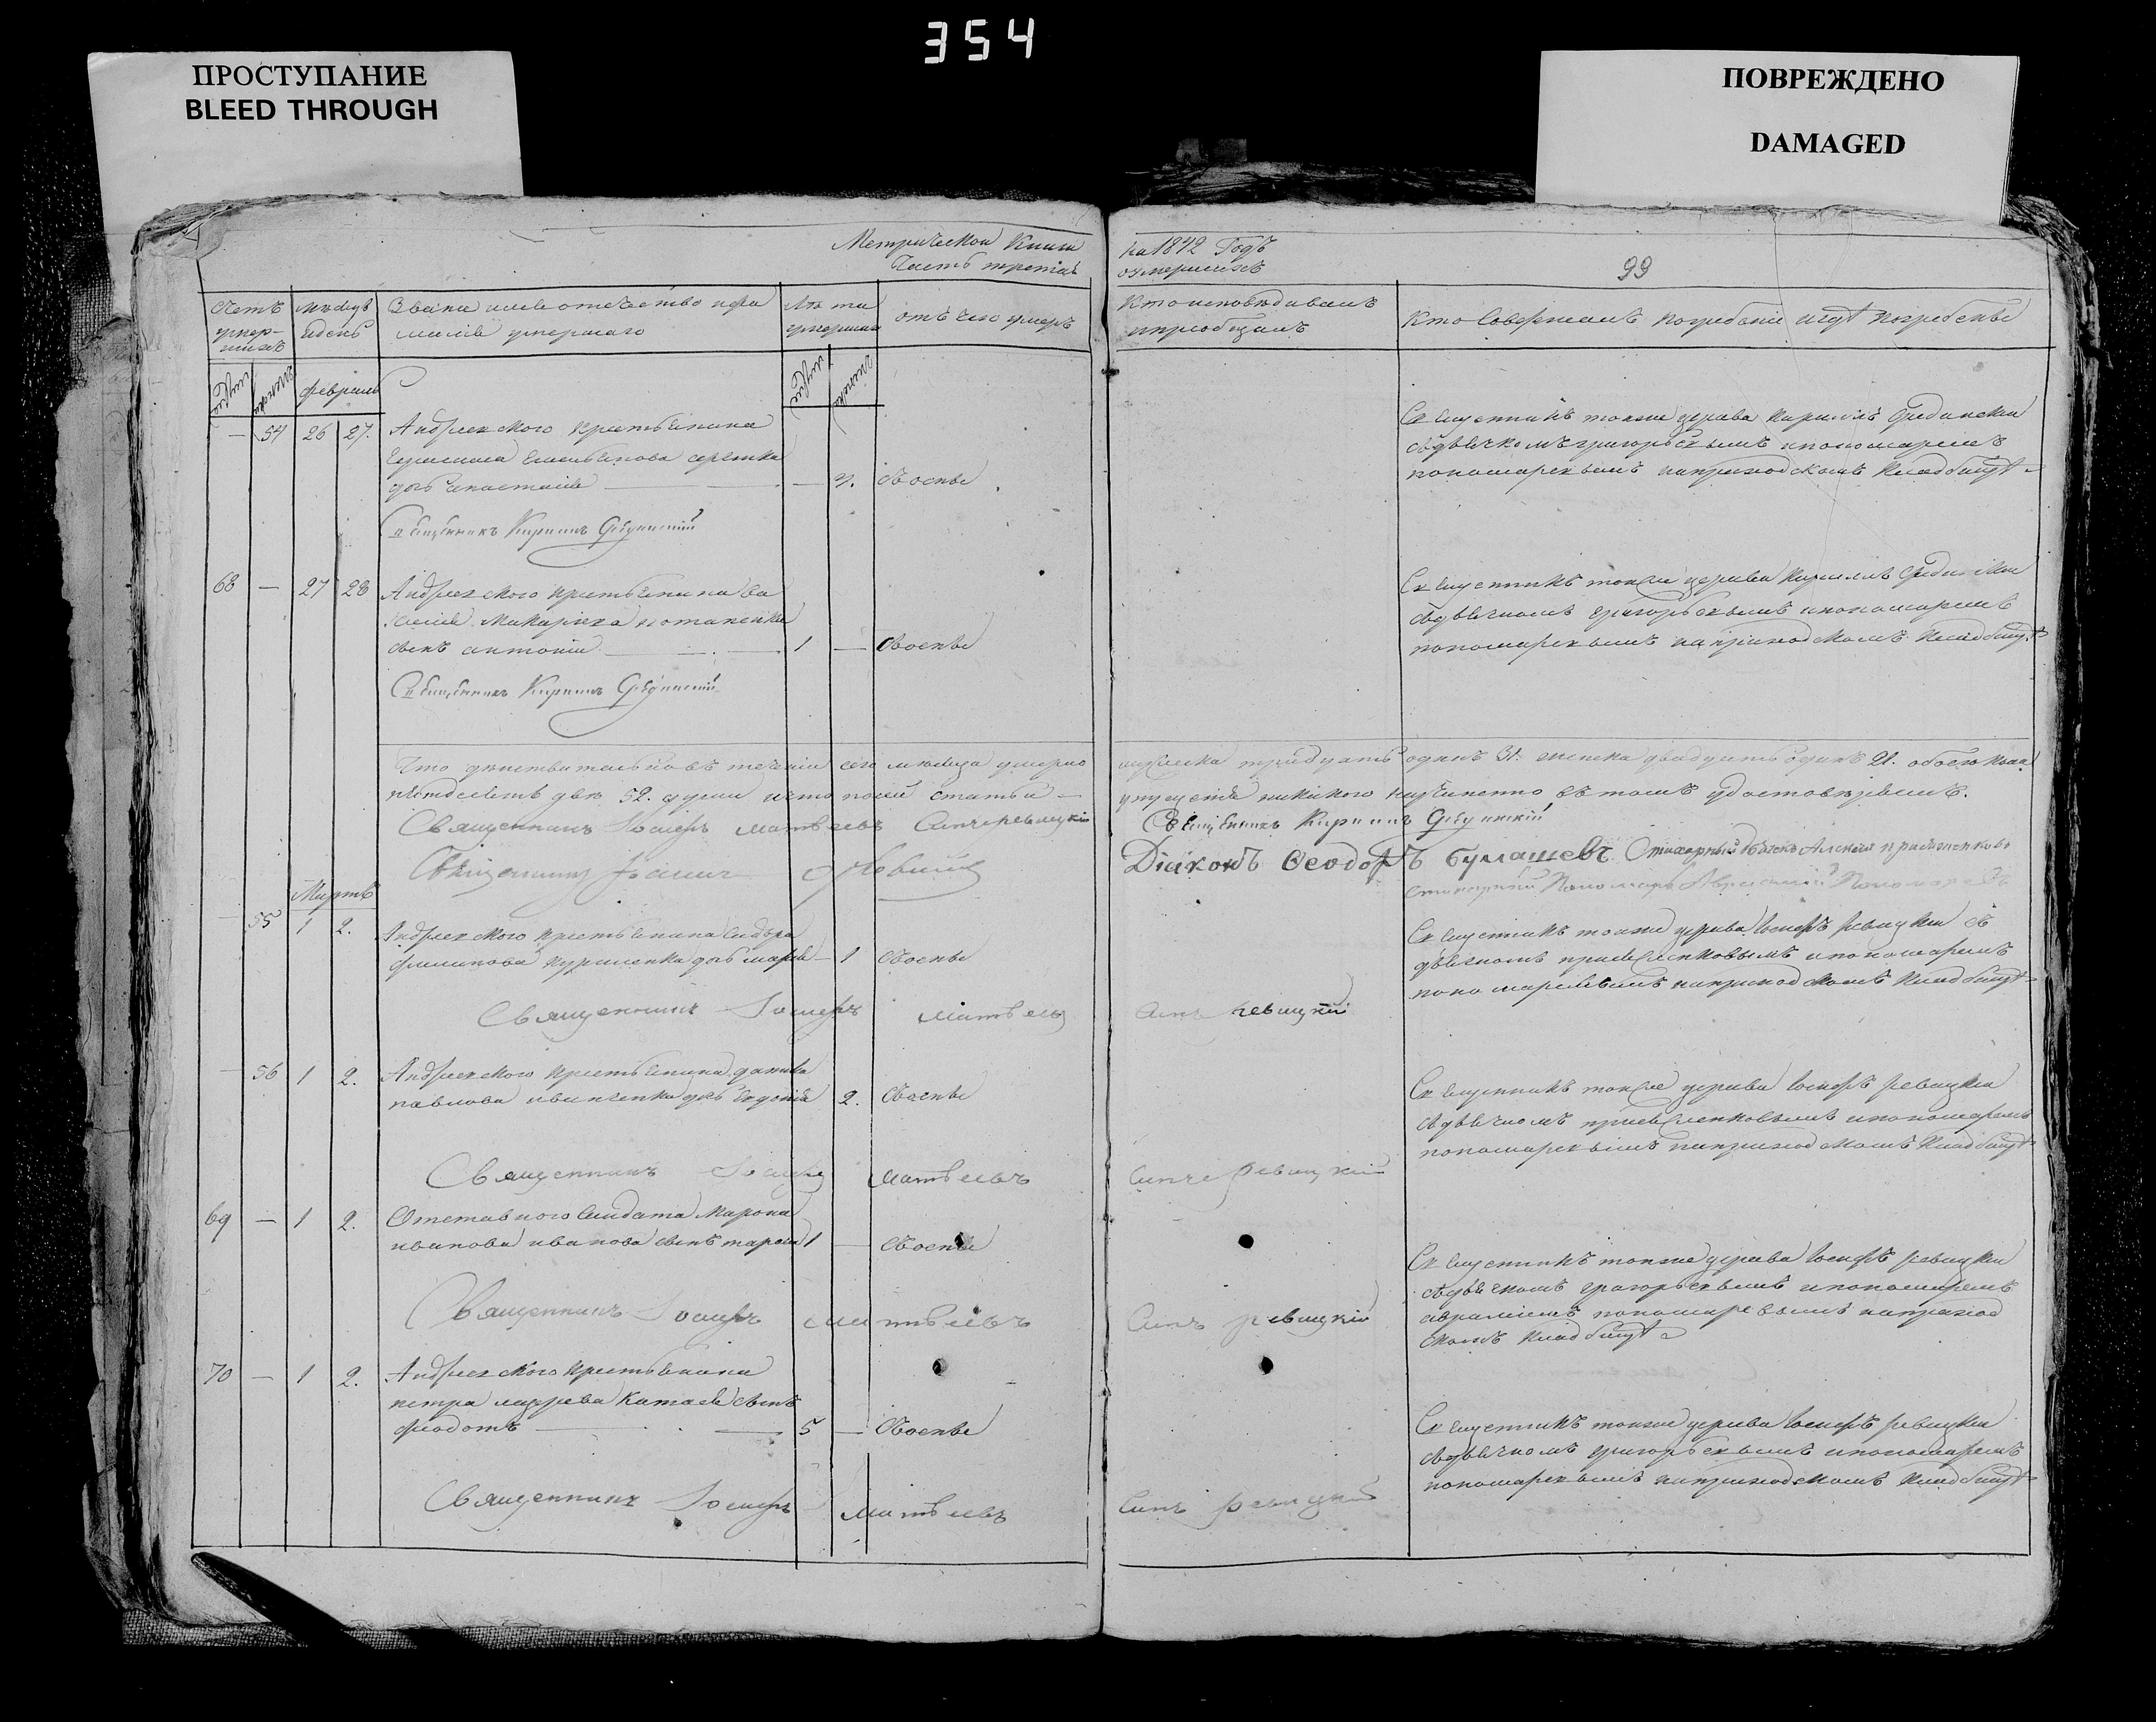 354
ПРОСТУПАНИЕ
BLEED THROUGH
ПОВРЕЖДЕНО
DAMAGED
Метрической Книги
Часть третiя
на 1842 Годъ
о умершихъ
99
Счетъ умер-шихъ
мѣсяцъ и день
Званiе имя отечество и фа
милiя умершаго
Лѣта умершихъ
отъ чего умеръ
Кто исповѣдывалъ
и прiобщалъ
Кто Совершалъ погребенiе и гдѣ погребены
февраль
— 54 26 27. Андреевскаго крестьянина
дочь анастасiя — — 3. Ѿ воспы
Священникъ тояже церкви Кириллъ
съ дьячкомъ григорьевымъ и пономаремъ
пономаревымъ на приходскомъ кладбищѣ
Священникъ Кириллъ
68 — 27 28 Андреевскаго крестьянина Ва
силiя Макарьева потапенка
сынъ антонiй — 1 — Ѿ воспы
Священникъ тояже церкви Кириллъ
съ дьячкомъ григорьевымъ и пономаремъ
пономаревымъ на приходскомъ кладбищѣ
Священникъ Кириллъ
Что дѣйствительно въ теченiи сего мѣсяца умерло мужеска тридцать одинъ 31. женска двадцать одинъ 21. обоего пола
пятдесятъ двѣ 52. души и что по сей статьи — упущенiя никакого не учинено въ томъ удостовѣряемъ.
Священникъ Iосифъ Матвѣевъ Синчеревицкiй
Священникъ Кириллъ
Священникъ Iоаннъ
Дiаконъ Ѳеодоръ Бумашевъ Стихарный дьячекъ
Стихарный Пономарь Аврамiй Пономаревъ
Мартъ
— 55 1 2. Андреевскаго крестьянина Сидора
филипова куриленка дочь марiя — 1 Ѿ воспы
Священникъ тояже церкви Iосифъ ревицкiй съ
дьячкомъ и пономаремъ
пономаревымъ на приходскомъ кладбищѣ
Священникъ Iосифъ Матвѣевъ Синчеревицкiй
— 56 1 2. Андреевскаго крестьянина данила
павлова иванченка дочь Евдокiя 2. Ѿ воспы
Священникъ тояже церкви Iосифъ ревицкiй
съ дьячкомъ и пономаремъ
пономаревымъ на приходскомъ кладбищѣ
Священникъ Iосифъ Матвѣевъ Синчеревицкiй
69 — 1 2. Отставного Салдата Марона
иванова иванова сынъ тарасiй 1 — Ѿ воспы
Священникъ тояже церкви Iосифъ ревицкiй
съ дьячкомъ григорьевымъ и пономаремъ
аврамiемъ пономаревымъ на приход
скомъ кладбищѣ
Священникъ Iосифъ Матвѣевъ Синчеревицкiй
70 — 1 2. Андреевскаго крестьянина
петра сынъ
феодотъ — 5 — Ѿ воспы
Священникъ тояже церкви Iосифъ ревицкiй
съ дьячкомъ григорьевымъ и пономаремъ
пономаревымъ на приходскомъ кладбищѣ
Священникъ Iосифъ Матвѣевъ Синчеревицкiй